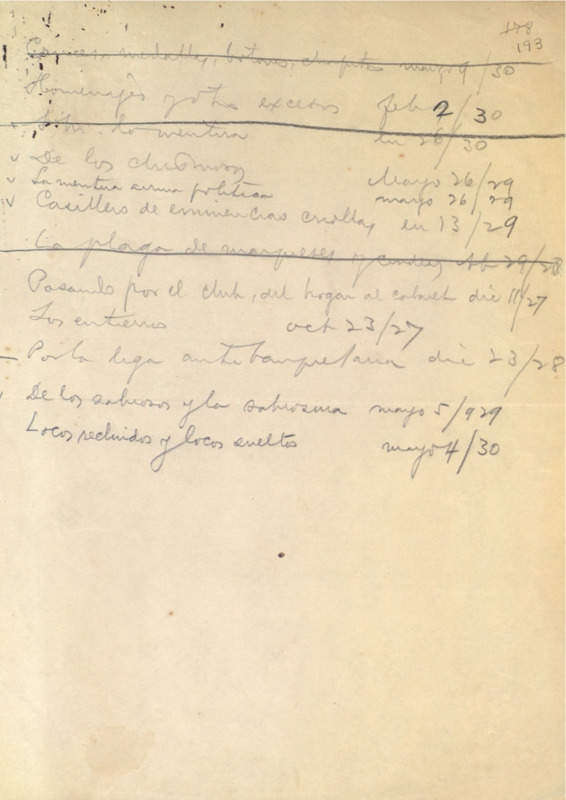 178
193
medallas, botones, chapitas mayo 9/30
Homenajes y otros excesos feb 2/30
S.M. la mentira en 26/30
De los chismosos Mayo 26/29
La mentira arma política mayo 26/29
Casillero de eminencias criollas en 13/29
La plaga de marqueses y condes Ab 29/28
Pasando por el club, del hogar al cabaret dic 11/27
Los entierros oct 23/27
Por la liga antibanquetaria dic 23/28
De los sabrosos y la sabrosura mayo 5/929
Locos recluidos y locos sueltos mayo 4/30